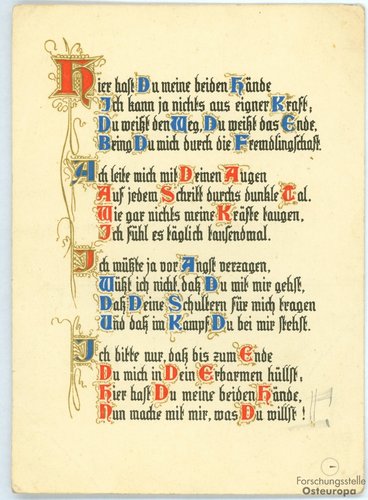 Hier hast Du meine beiden Hände
Ich kann ja nichts aus eigner Kraft;
Du weißt den Weg, Du weißt das Ende,
Bring Du mich durch die Fremdlingschaft.
Ach leite mich mit Deinen Augen
Auf jedem Schritt durchs dunkle Tal.
Wie gar nichts meine Kräfte taugen,
Ich fühl es täglich tausendmal.
Ich müßte ja vor Angst verzagen,
Wüßt ich nicht, daß Du mit mir gehst,
Daß Deine Schultern für mich tragen
Und daß im Kampf Du bei mir stehst.
Ich bitte nur, daß bis zum Ende
Du mich in Dein Erbarmen hüllst;
Hier hast Du meine beiden Hände,
Nun mache mit mir, was Du willst!
Forschungsstelle
Osteuropa